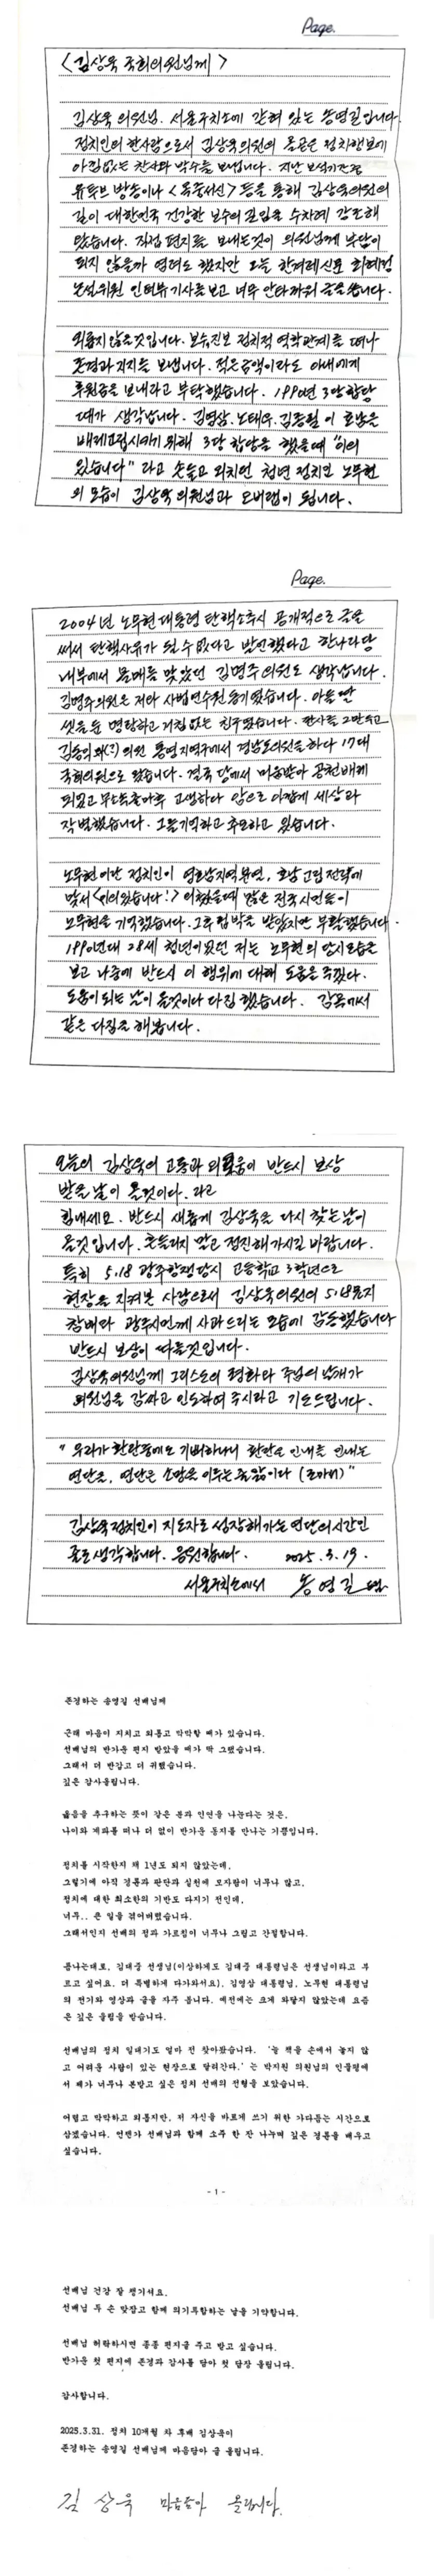 Page.
<김상욱 국회의원님께>
김상욱 의원님. 서울구치소에 갇혀 있는 송영길입니다.
정치인의 한사람으로서 김상욱의원의 용기있는 정치행보에
아낌없는 찬사와 박수를 보냅니다. 지난 보석기간중
유튜브 방송이나 <옥중서신> 등을 통해 김상욱의원의
길이 대한민국 건강한 보수의 길임을 수차례 강조해
왔습니다. 직접 편지를 보내는것이 의원님께 부담이
되지 않을까 염려도 했지만 오늘 한겨레신문 최혜정
논설위원 인터뷰기사를 보고 너무 안타까워 글을 씁니다.
외롭지 않을것입니다. 보수진보 정치적 역학관계를 떠나
존경과 지지를 보냅니다. 적은금액이라도 아내에게
후원금을 보내라고 부탁했습니다. 1990년 3당합당
때가 생각납니다. 김영삼. 노태우. 김종필 이 호남을
배제고립시키기 위해 3당 합당을 했을때 "이의
있습니다" 라고 손들고 외치던 청년 정치인 노무현
의 모습이 김상욱 의원님과 오버랩이 됩니다.
Page.
2004년 노무현대통령 탄핵소추시 공개적으로 글을
써서 탄핵사유가 될 수 없다고 발언했다고 한나라당
내부에서 몰매를 맞았던 김명주 의원도 생각납니다.
김명주의원은 저와 사법연수원 동기였습니다. 아들 딸
셋을 둔 명랑하고 거침없는 친구였습니다. 판사를 그만두고
김동욱 의(?)의원 통영지역구에서 경남도의원을 하다 17대
국회의원으로 왔습니다. 결국 당에서 미움받아 공천배제
되었고 무소속출마후 고생하다 암으로 아깝게 세상과
작별했습니다. 그를 기억하고 추모하고 있습니다.
노무현이란 정치인이 영호남지역분열, 호남고립전략에
맞서 <이의있습니다!> 외쳤을때 많은 전국시민들이
노무현을 기억했습니다. 그후 핍박을 받았지만 부활했습니다.
1990년대 28세 청년이었던 저는 노무현의 당시모습을
보고 나중에 반드시 이 행위에 대해 도움을 주겠다.
도움이 되는 날이 올것이다 다짐 했습니다. 감옥에서
같은 다짐을 해봅니다.
오늘의 김상욱의 고통과 외로움이 반드시 보상
받을 날이 올것이다. 라고
힘내세요. 반드시 새롭게 김상욱을 다시 찾는날이
올것입니다. 흔들리지 말고 정진해가시길 바랍니다.
특히 5.18 광주항쟁당시 고등학교 3학년으로
현장을 지켜본 사람으로서 김상욱의원의 5.18묘지
참배와 광주시민께 사과드리는 모습에 감동했습니다
반드시 보상이 따를것입니다.
김상욱의원님께 그리스도의 평화와 주님의 날개가
의원님을 감싸고 인도하여 주시라고 기도드립니다.
"우리가 환란중에도 기뻐하나니 환란은 인내를 인내는
연단을, 연단은 소망을 이루는줄 앎이다 (로마서)"
김상욱정치인이 지도자로 성장해가는 연단의시간인
줄로 생각합니다. 응원합니다. 2025. 3. 19.
서울구치소에서 송영길
존경하는 송영길 선배님께
근래 마음이 지치고 외롭고 막막할 때가 있습니다.
선배님의 반가운 편지 받았을 때가 딱 그랬습니다.
그래서 더 반갑고 더 귀했습니다.
깊은 감사올립니다.
옳음을 추구하는 뜻이 같은 분과 인연을 나눈다는 것은,
나이와 계파를 떠나 더 없이 반가운 동지를 만나는 기쁨입니다.
정치를 시작한지 채 1년도 되지 않았는데,
그렇기에 아직 경륜과 판단과 실천에 모자람이 너무나 많고,
정치에 대한 최소한의 기반도 다지기 전인데,
너무.. 큰 일을 겪어버렸습니다.
그래서인지 선배의 정과 가르침이 너무나 그립고 간절합니다.
틈나는대로, 김대중 선생님(이상하게도 김대중 대통령님은 선생님이라고 부
르고 싶어요. 더 특별하게 다가와서요), 김영삼 대통령님, 노무현 대통령님
의 전기와 영상과 글을 자주 봅니다. 예전에는 크게 와닿지 않았는데 요즘
은 깊은 울림을 받습니다.
선배님의 정치 일대기도 얼마 전 찾아봤습니다. '늘 책을 손에서 놓지 않
고 어려운 사람이 있는 현장으로 달려간다.' 는 박지원 의원님의 인물평에
서 제가 너무나 본받고 싶은 정치 선배의 전형을 보았습니다.
어렵고 막막하고 외롭지만, 저 자신을 바르게 쓰기 위한 가다듬는 시간으로
삼겠습니다. 언젠가 선배님과 함께 소주 한 잔 나누며 깊은 경륜을 배우고
싶습니다.
- 1 -
선배님 건강 잘 챙기셔요.
선배님 두 손 맞잡고 함께 의기투합하는 날을 기약합니다.
선배님 허락하시면 종종 편지글 주고 받고 싶습니다.
반가운 첫 편지에 존경과 감사를 담아 첫 답장 올립니다.
감사합니다.
2025.3.31. 정치 10개월 차 후배 김상욱이
존경하는 송영길 선배님께 마음담아 글 올립니다.
김 상 욱 마음담아 올립니다.